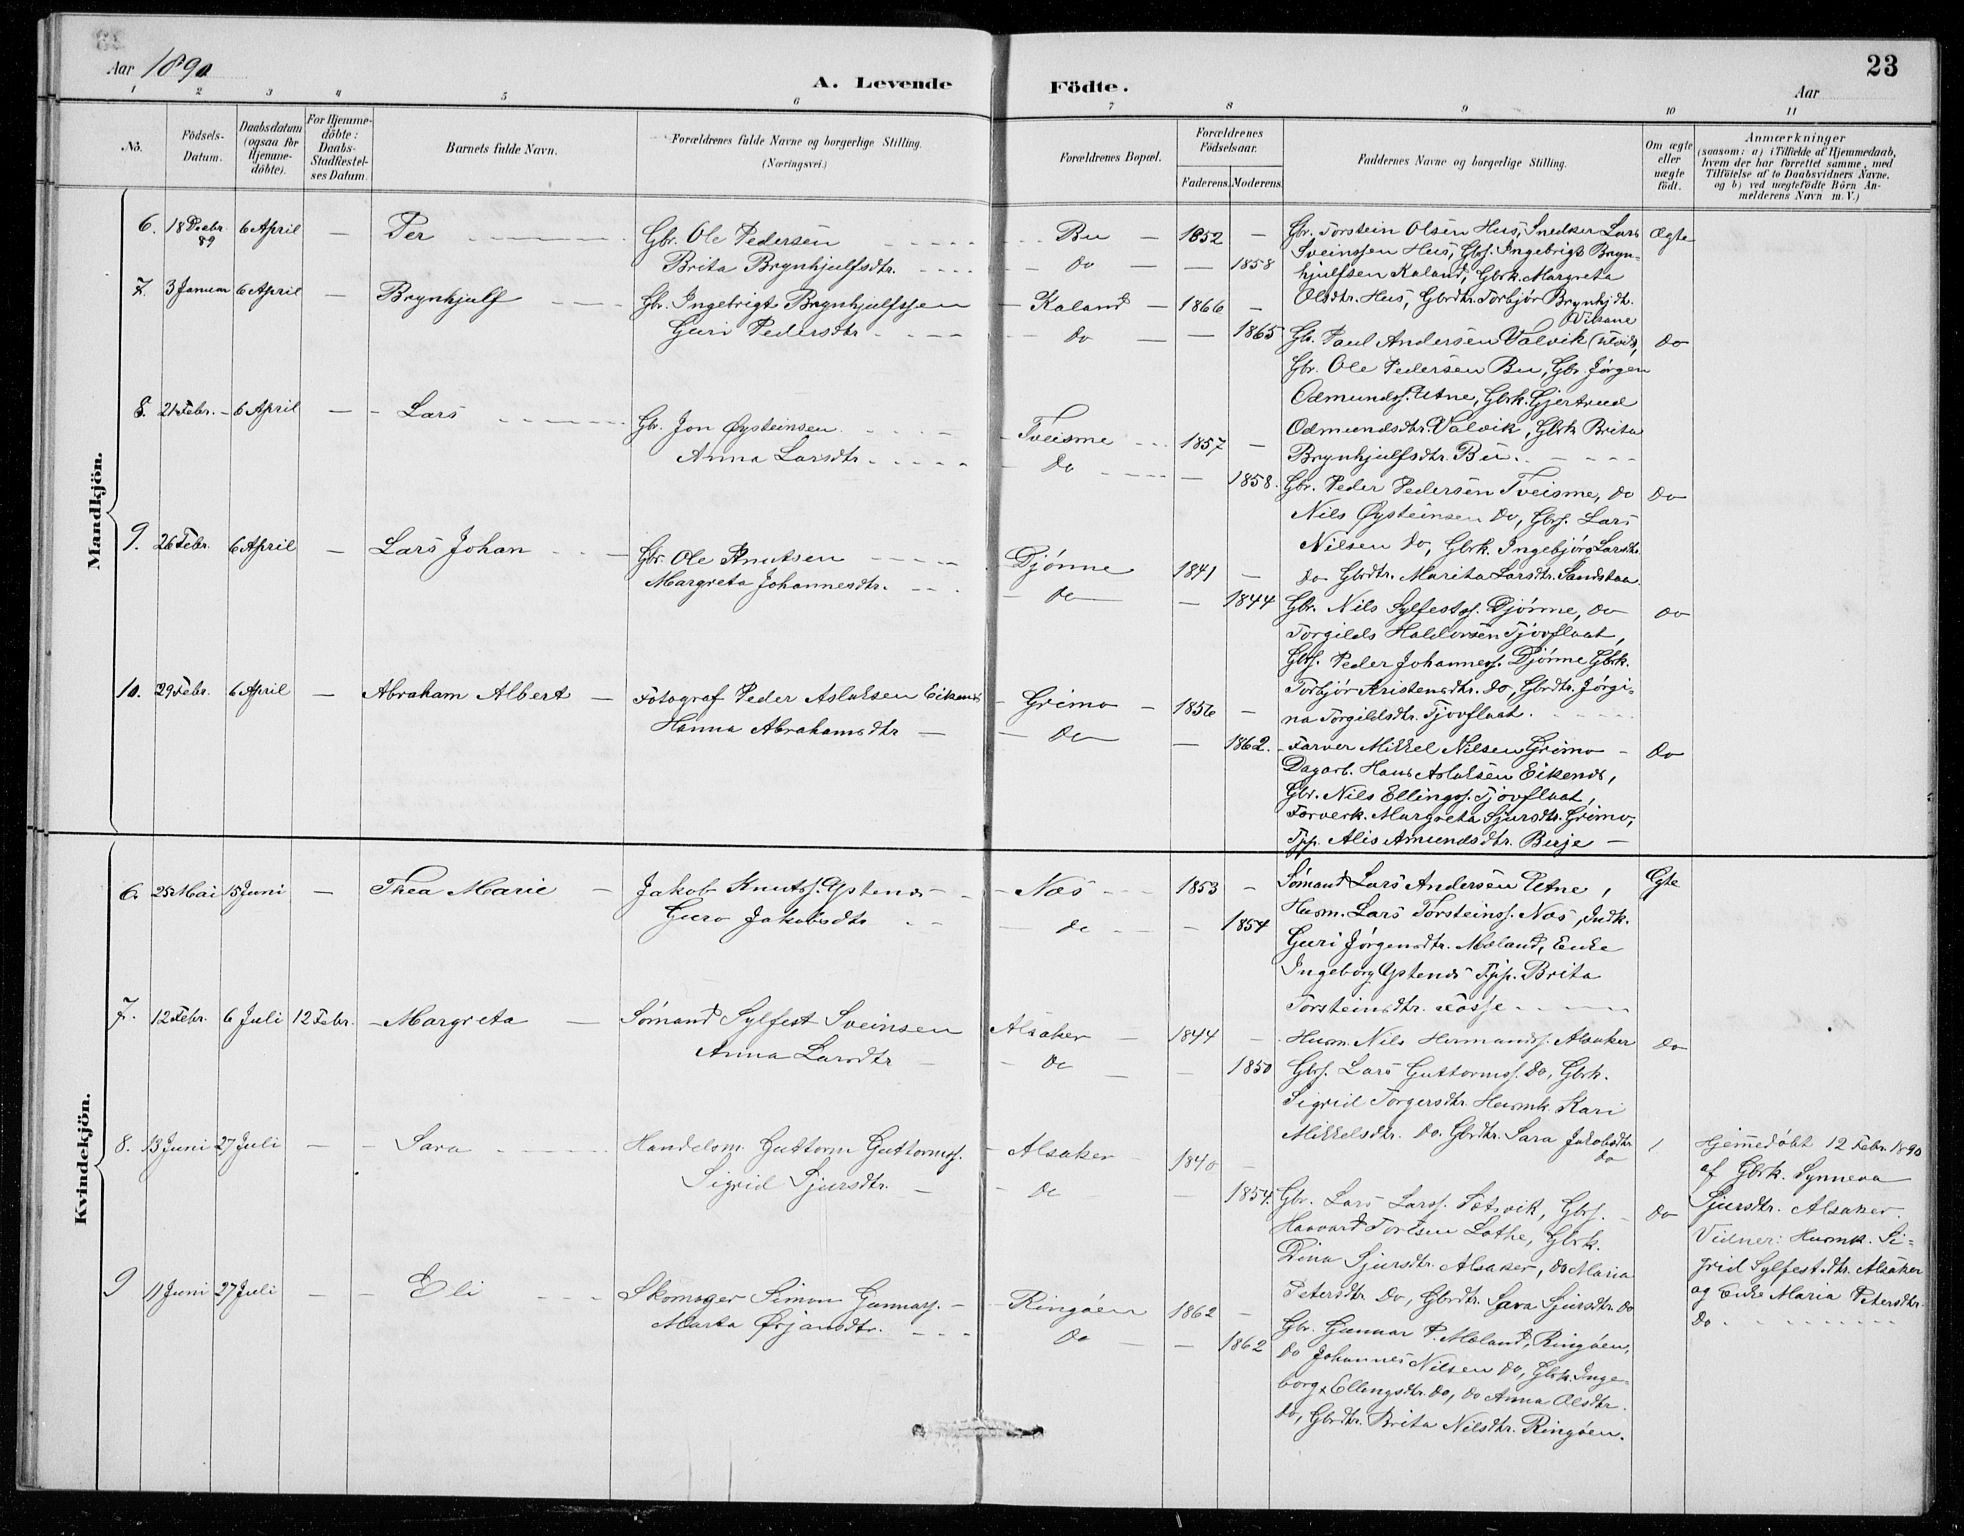 Aar 1890
A. Levende Födte.
23
Aar
1 2 3 4 5 6 7 8 9 10 11
No.
Födsels-Datum.
Daabsdatum (ogsaa for Hjemme-döbte).
For Hjemme-döbte: Daabs-Stadfæstel-ses Datum.
Barnets fulde Navn.
Forældrenes fulde Navne og borgerlige Stilling. (Næringsvei.)
Forældrenes Bopæl.
Forældrenes Födselsaar.
Faderens. Moderens.
Faddernes Navne og borgerlige Stilling.
Om ægte eller uægte födt.
Anmærkninger
(saasom: a) i Tilfælde af Hjemmedaab,
hvem der har forrettet samme, med
Tilföielse af to Daabsvidners Navne,
og b) ved uægtefödte Börn An-
melderens Navn m. V.)
Mandkjön.
6. 18 Decbr. 89 6 April — Per
Gbr. Ole Pedersen
Brita Brynhjulfsdtr.
Bu 1852
do 1858
Gbr. Torstein Olsen Hus, Snedker Lars
Sveinssen Hus, Gbs. Ingebrigt Bryn-
hjulfsen Kaland, Gbrk. Margreta
Olsdtr. Hus, Gbrdtr. Torbjør Brynhjdtr.
Vikane
Ægte
7. 3 Januar 6 April — Brynhjulf
Gbr. Ingebrigt Brynhjulfssen
Guri Pedersdtr.
Kaland 1866
do 1865
Gbr. Paul Andersen Valvik
Gbr. Ole Pedersen Bu, Gbr. Jørgen
Odmundss. Utne, Gbrk. Gjertrud
Odmundsdtr. Valvik, Gbrk Brita
Brynhjulfsdtr. Bu.
do
8. 21 Febr. 6 April — Lars
Gbr. Jon Øysteinsen
Anna Larsdtr.
Tveisme 1857
do 1858.
Gbr. Peder Pedersen Tveisme, do
Nils Øysteinsen do, Gbrs. Lars
Nilsen do, Gbrk. Ingebjørg Larsdtr.
do Gbrdtr. Marita Larsdtr. Sandstaa.
do
9. 26 Febr. 6 April — Lars Johan
Gbr. Ole Knutsen
Margreta Johannesdtr.
Djönne 1841
do 1844
Gbr. Nils Sylfestss. Djönne, do
Torgilds Haldorsen Tjovflaat,
Gbrs. Peder Johanness. Djönne Gbrk.
Torbjør Kristensdtr. do, Gbrdtr. Jørgi-
na Torgildsdtr. Tjovflaat.
do
10. 29 Febr. 6 April — Abraham Albert
Fotograf Peder Aslaksen Eikenes
Hanna Abrahamsdtr
Grimo 1856
do 1862.
Farver Mikkel Nilsen Grimo
Dagarb. Hans Aslaksen Eikenes,
Gbr. Nils Ellingss. Tjovflaat,
Farverk. Margreta Sjursdtr. Grimo,
Tjp. Alis Amundsdtr. Berje
do
Kvindekjön.
6. 25 Mai 15 Juni — Thea Marie
Jakob Knutss. Ystenes
Guro Jakobsdtr
Næs 1853
do 1854
Sömand Lars Andersen Utne,
Husm. Lars Torsteinss. Næs, Indk.
Guri Jørgensdtr. Mæland, Enke
Ingeborg Ystenes Tjp. Brita
Torsteinsdtr. Fosse
Ægte
7. 12 Febr. 6 Juli 12 Febr. Margreta
Sömand Sylfest Sveinsen
Anna Larsdtr
Alsaker 1844
do 1850
Husm. Nils Hermundss. Alsaker
Gbrs. Lars Guttormss. do, Gbrk.
Sigrid Torgersdtr. Husmk. Kari
Mikkelsdtr. do. Gbrdtr. Sara Jakobsdtr
do
do
Hjemedøbt 12 Febr. 1890
af Gbrk. Synneva
Sjursdtr. Alsaker.
Vidner: Husmk. Si-
grid Sylfestsdtr. Alsaker
og Enke Maria Petersdtr.
do
8. 13 Juni 27 Juli — Sara
Handelsm. Guttorm Guttormss.
Sigrid Sjursdtr.
Alsaker 1840
do 1854.
Gbr. Lars Larss. Sætsvik, Gbrs.
Haavard Torlsen Lothe, Gbrk.
Dina Sjursdtr. Alsaker, do Maria
Petersdtr do, Gbrdtr. Sara Sjursdtr. do
do
9 11 Juni 27 Juli — Eli
Skomager Simon Gunnars.
Marta Ørjansdtr.
Ringöen 1862
do 1862
Gbr. Gunnar P. Mæland, Ringöen,
do Johannes Nilsen do, Gbrk. Inge-
borg Ellingsdtr. do, do Anna Olsdtr.
do, Gbrdtr. Brita Nilsdtr. Ringöen.